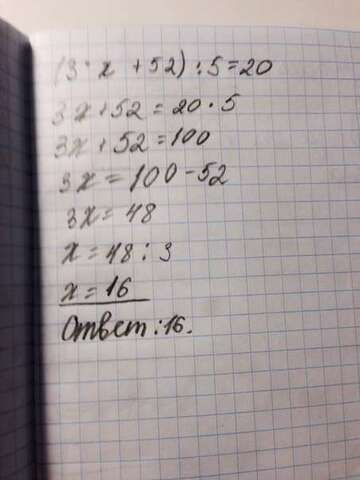 (3·x+52):5=20
3x+52=20·5
3x+52=100
3x=100-52
3x=48
x=48:3
x=16
Ответ:16.